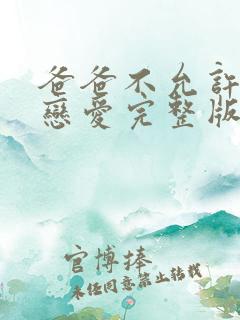 爸爸不允許
戀愛完整版
官博捧
未任同意禁止转载